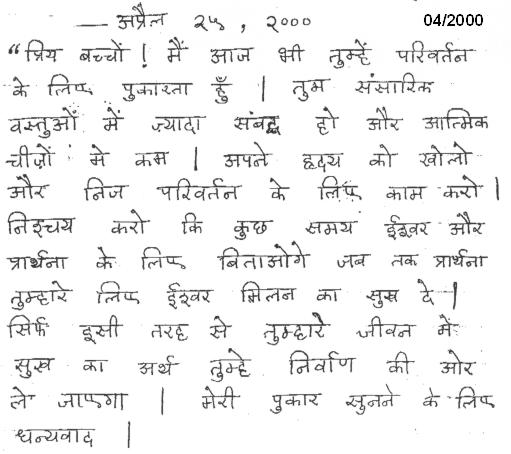 — अप्रैल २५, २००० 04/2000
“प्रिय बच्चों ! मैं आज भी तुम्हें परिवर्तन
के लिए पुकारता हूँ | तुम संसारिक
वस्तुओं में ज्यादा संबद्ध हो और आत्मिक
चीज़ों मे कम | अपने हृदय को खोलो
और निज परिवर्तन के लिए काम करो |
निश्चय करो कि कुछ समय ईश्वर और
प्रार्थना के लिए बिताओगे जब तक प्रार्थना
तुम्हारे लिए ईश्वर मिलन का सुख दे |
सिर्फ इसी तरह से तुम्हारे जीवन में
सुख का अर्थ तुम्हे निर्वाण की ओर
ले जाएगा | मेरी पुकार सुनने के लिए
धन्यवाद |